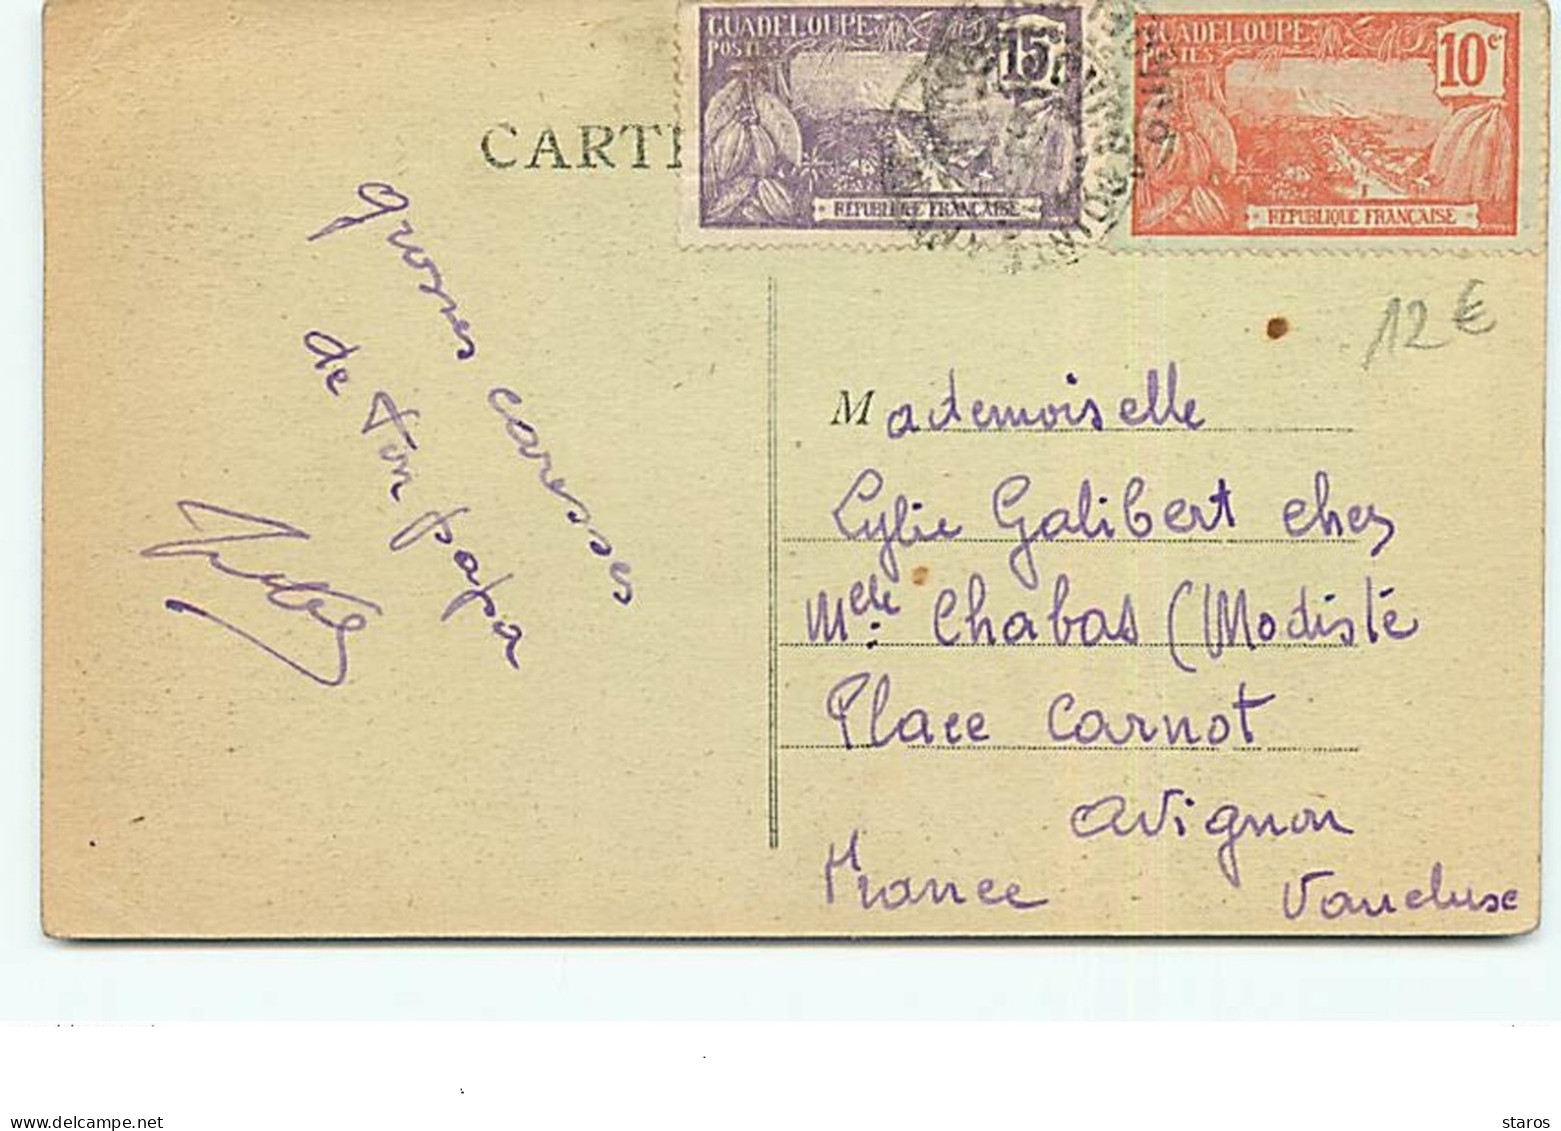 GUADELOUPE
POSTES
15c
RÉPUBLIQUE FRANÇAISE
GUADELOUPE
POSTES
10c
RÉPUBLIQUE FRANÇAISE
CARTE
12€
grosses caresses
de ton papa
Mademoiselle
Lylie Galibert chez
Melle Chabas (Modiste
Place Carnot
Avignon
France Vaucluse
www.delcampe.net
staros